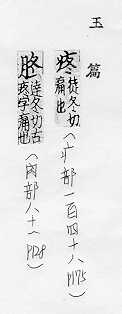 玉篇
疼 徒冬切
痛也
(疒部一百四十八 P175)
胳 徒冬切古
疼字痛也
(肉部八十一 P128)